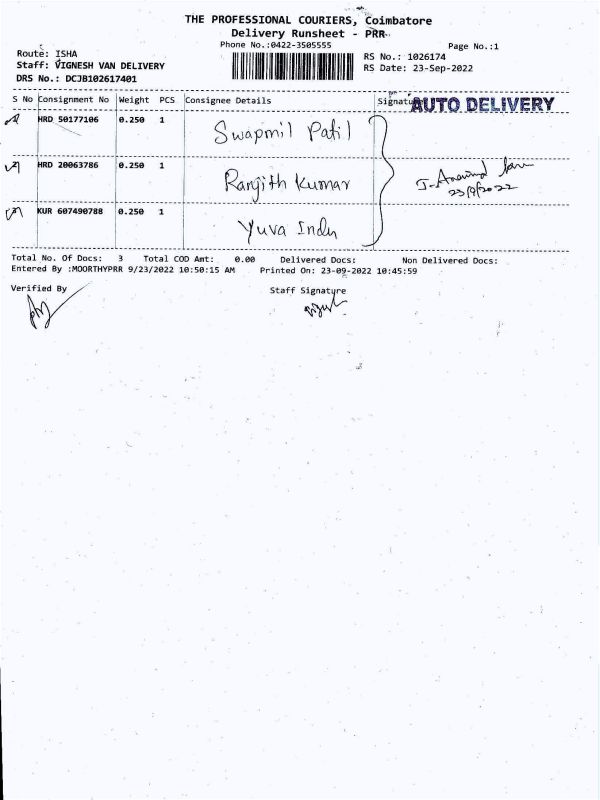 THE PROFESSIONAL COURIERS, Coimbatore
Delivery Runsheet - PRR
Phone No.:0422-3505555 Page No.:1
Route: ISHA RS No.: 1026174
Staff: VIGNESH VAN DELIVERY RS Date: 23-Sep-2022
DRS No.: DCJB102617401
S No Consignment No Weight PCS Consignee Details Signature AUTO DELIVERY
1 HRD 50177106 0.250 1 Swapmil Patil
2 HRD 20063786 0.250 1 Ranjith Kumar
J. Aravind
23/9/2022
3 KUR 607490788 0.250 1 Yuva Indu
Total No. Of Docs: 3 Total COD Amt: 0.00 Delivered Docs: Non Delivered Docs:
Entered By :MOORTHYPRR 9/23/2022 10:50:15 AM Printed On: 23-09-2022 10:45:59
Verified By Staff Signature